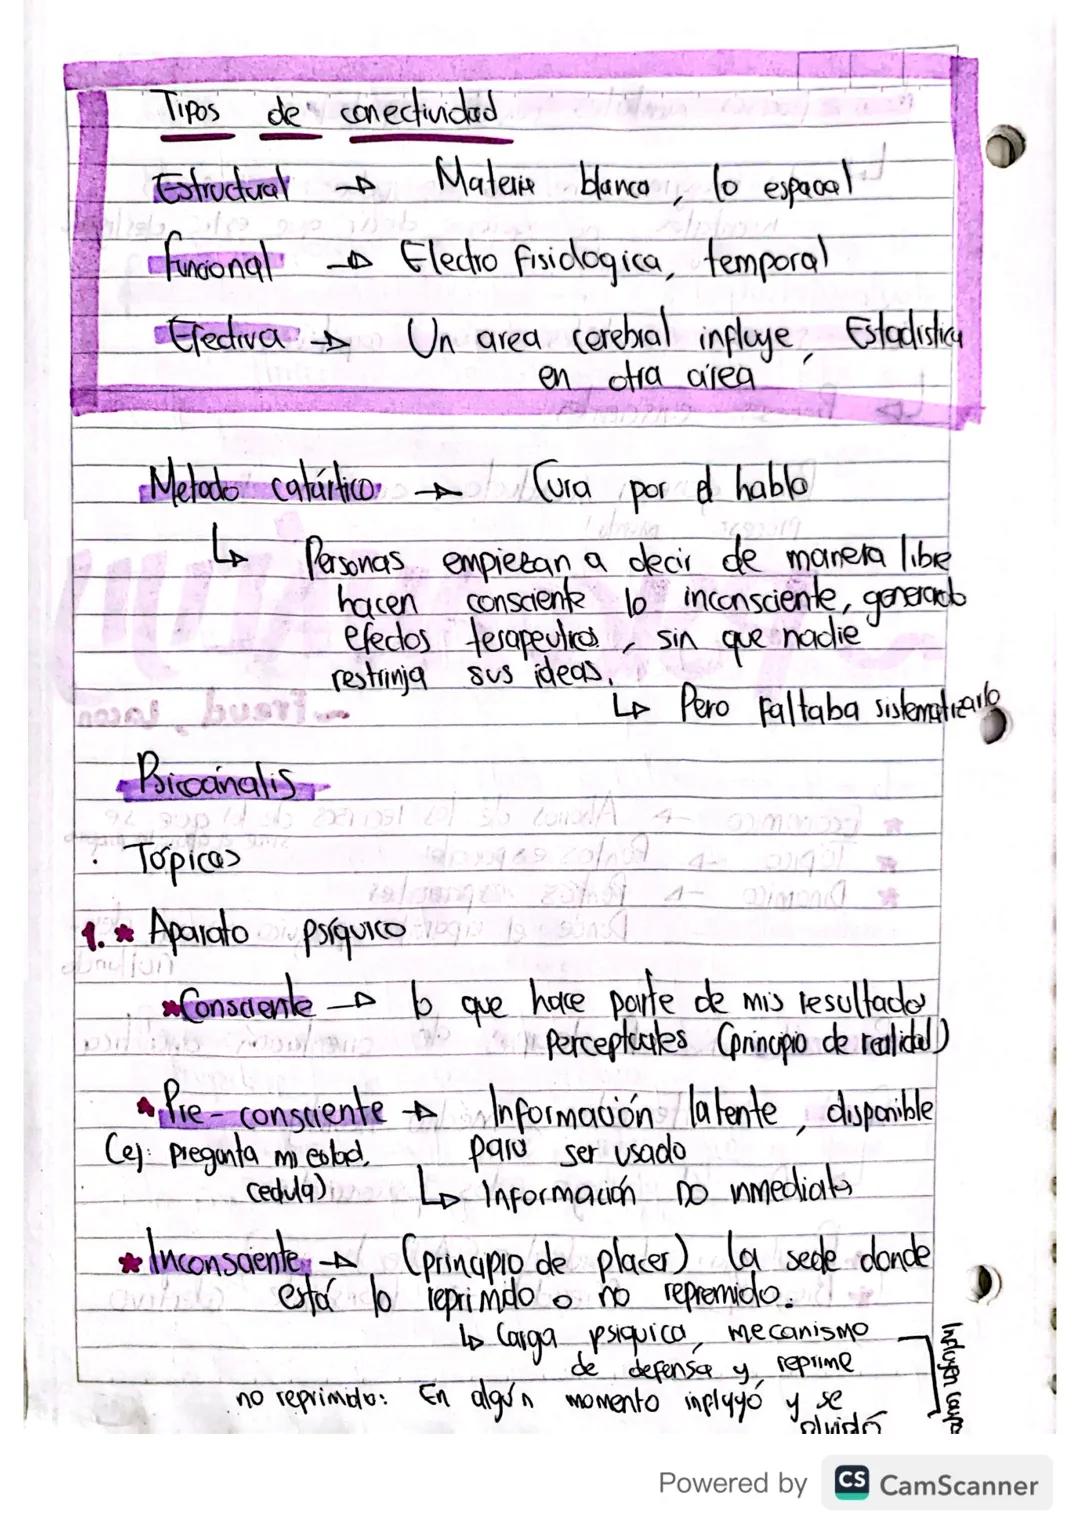 Tipos de conectividad
Estructural → Materia blanca, lo espacial
Funcional → Electro fisiologica, temporal
Efectiva → Un area cerebral influye, Estadistica
en otra área
Metodo catártico → Cura por el habla
↳ Personas empiezan a decir de manera libre
hacen consciente lo inconsciente, generando
efectos terapeutios, sin que nadie
restrinja sus ideas.
↳ Pero faltaba sistematizarlo
Psicoánalis
: Tópicas
1. * Aparato psíquico
* Consciente → lo que hace parte de mis resultados
perceptuales (principio de realidad)
* Pre-consciente → Información latente, disponible
(ej: pregunta mi edad, para ser usado
cedula) ↳ Información no inmediata
* Inconsciente → (principio de placer) la sede donde
está lo reprimido o no repremido.
↳ Carga psiquica, mecanismo
de defensa y reprime
no reprimido: En algún momento influyó y se
olvidó
Influyen
Powered by CS CamScanner